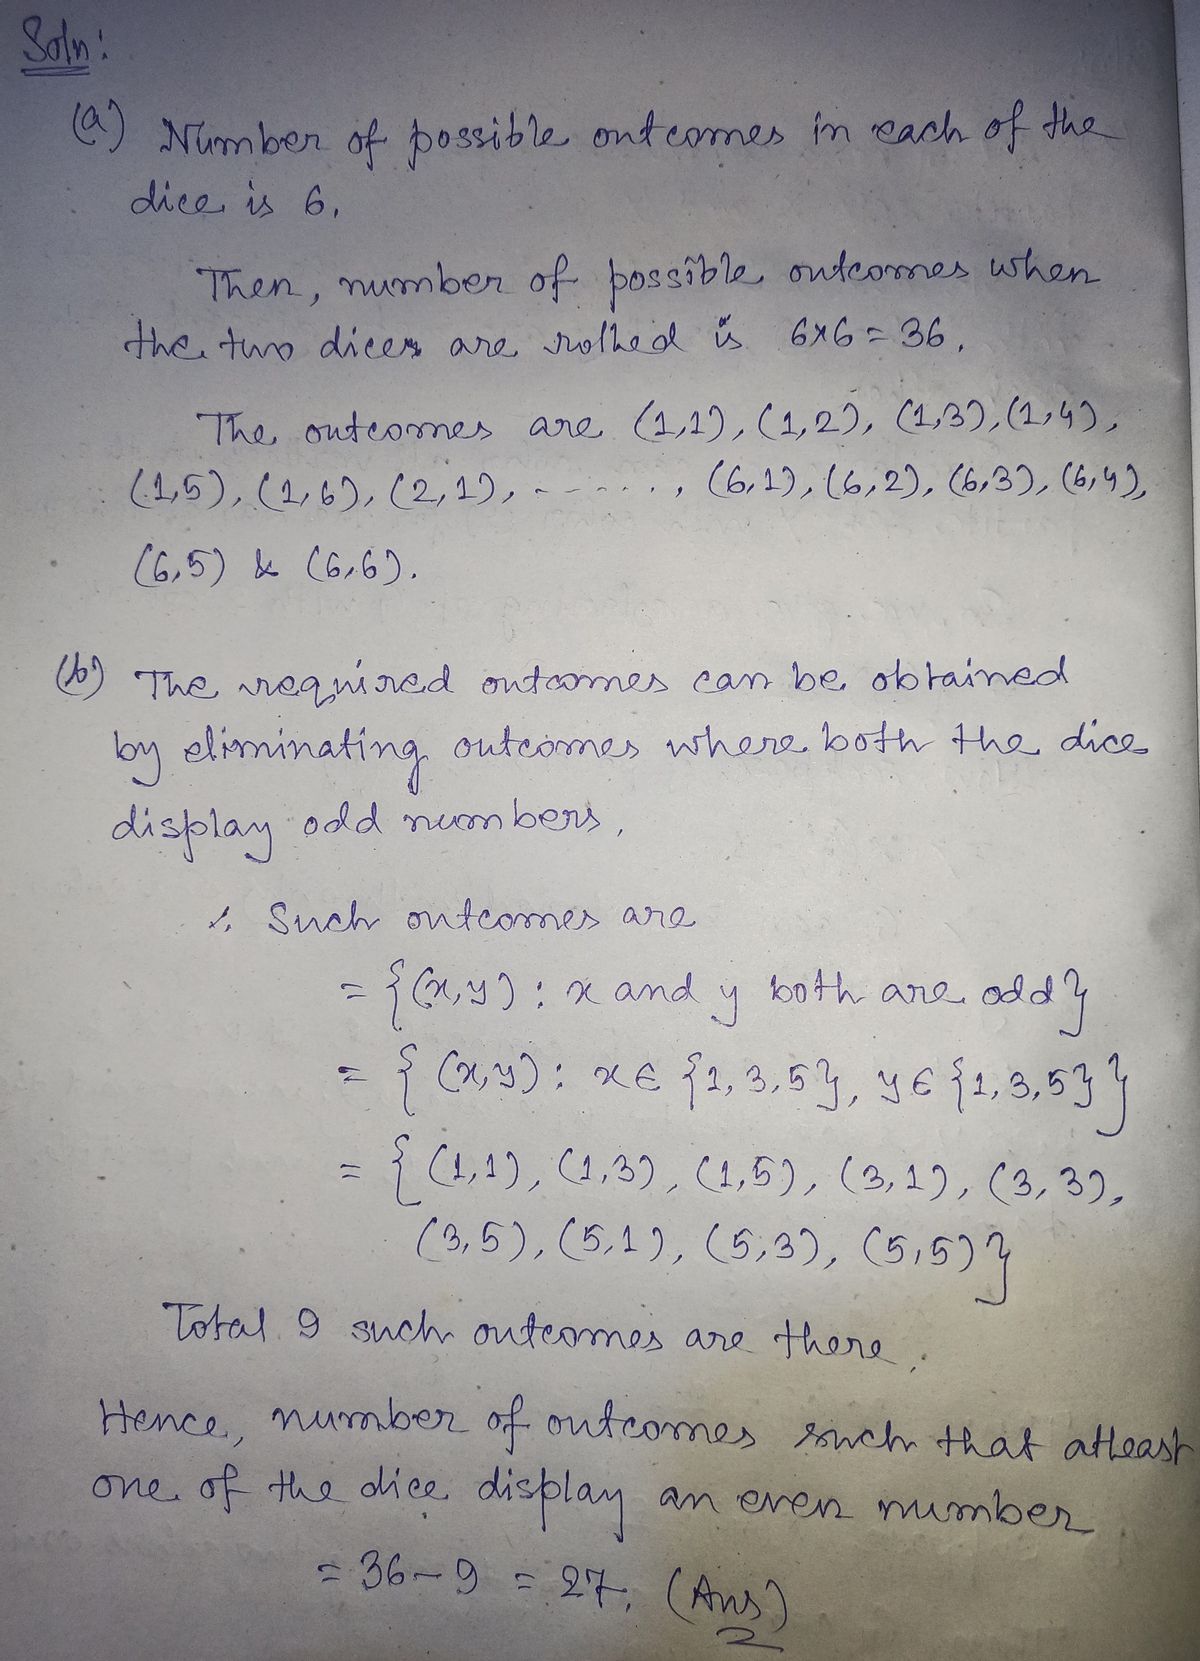 Soln:
(a) Number of possible outcomes in each of the
dice is 6.
Then, number of possible outcomes when
the two dices are rolled is 6×6 = 36.
The outcomes are (1,1), (1,2), (1,3), (1,4),
(1,5), (1,6), (2,1), ......, (6,1), (6,2), (6,3), (6,4),
(6,5) & (6,6).
(b) The required outcomes can be obtained
by eliminating outcomes where both the dice
display odd numbers.
∴ Such outcomes are
= {(x,y) : x and y both are odd}
= { (x,y) : x ∈ {1,3,5}, y ∈ {1,3,5}}
= { (1,1), (1,3), (1,5), (3,1), (3,3),
(3,5), (5,1), (5,3), (5,5)}
Total 9 such outcomes are there.
Hence, number of outcomes such that atleast
one of the dice display an even number
= 36 - 9 = 27. (Ans)